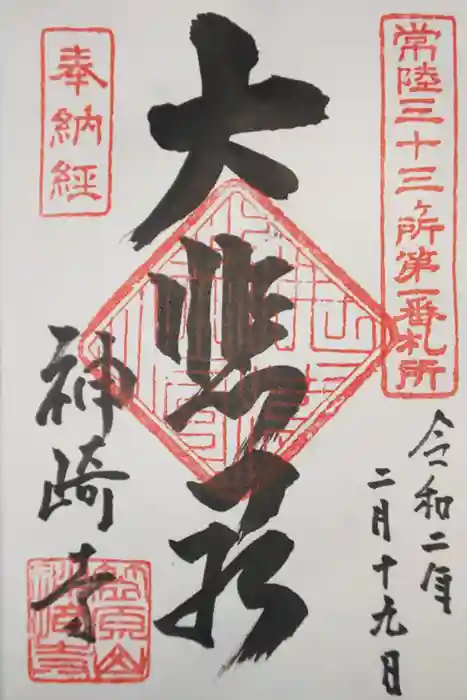 常陸三十三ヶ所第一番札所
令和二年
二月十九日
大悲殿
奉納経
神崎寺
笠原山
神崎寺